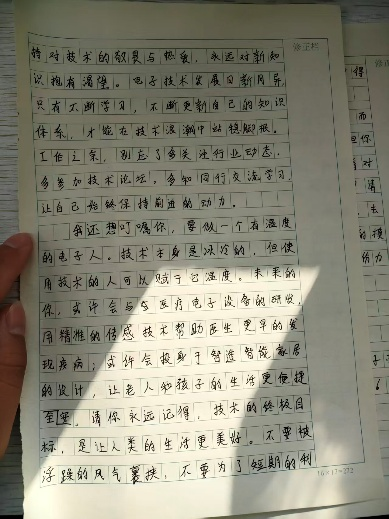 持对技术的敬畏与热爱，永远对新知
识拥有渴望。电子技术发展日新月异，
只有不断学习，不断更新自己的知识
体系，才能在技术浪潮中站稳脚跟。
工作之余，别忘了多关注行业动态，
多参加技术论坛，多和同行交流学习，
让自己始终保持前进的动力。
我还想叮嘱你，要做一个有温度
的电子人。技术本身是冰冷的，但使
用技术的人可以赋予它温度。未来的
你，或许会参与医疗电子设备的研发，
用精准的传感技术帮助医生更早的发
现疾病；或许会投身于智能家居
的设计，让老人和孩子的生活更便捷
，请你永远记得，技术的终极目
标，是让人类的生活更美好。不要被
浮躁的风气裹挟，不要为了短期的利
16×17=272